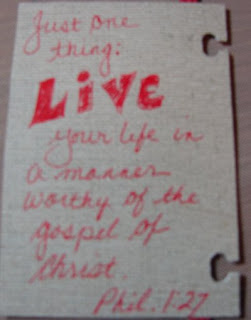 Just one
thing:
LIVE
your life in
a manner
worthy of the
gospel of
Christ.
Phil. 1:27